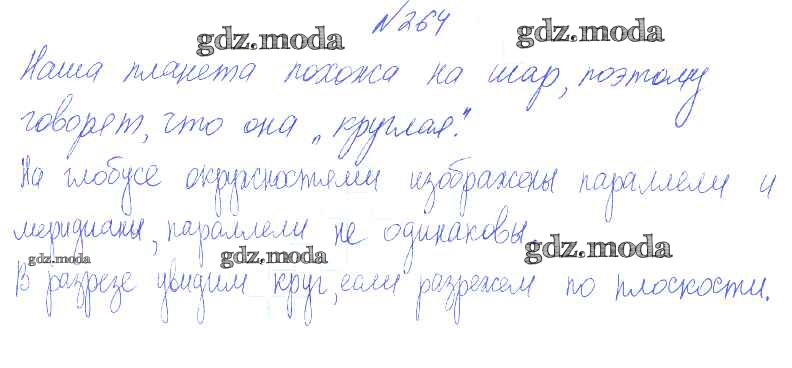 №264
gdz.moda gdz.moda
Наша планета похожа на шар, поэтому
говорят, что она „круглая".
На глобусе окружностями изображены параллели и
меридианы, параллели не одинаковы.
gdz.moda gdz.moda gdz.moda
В разрезе увидим круг, если разрежем по плоскости.